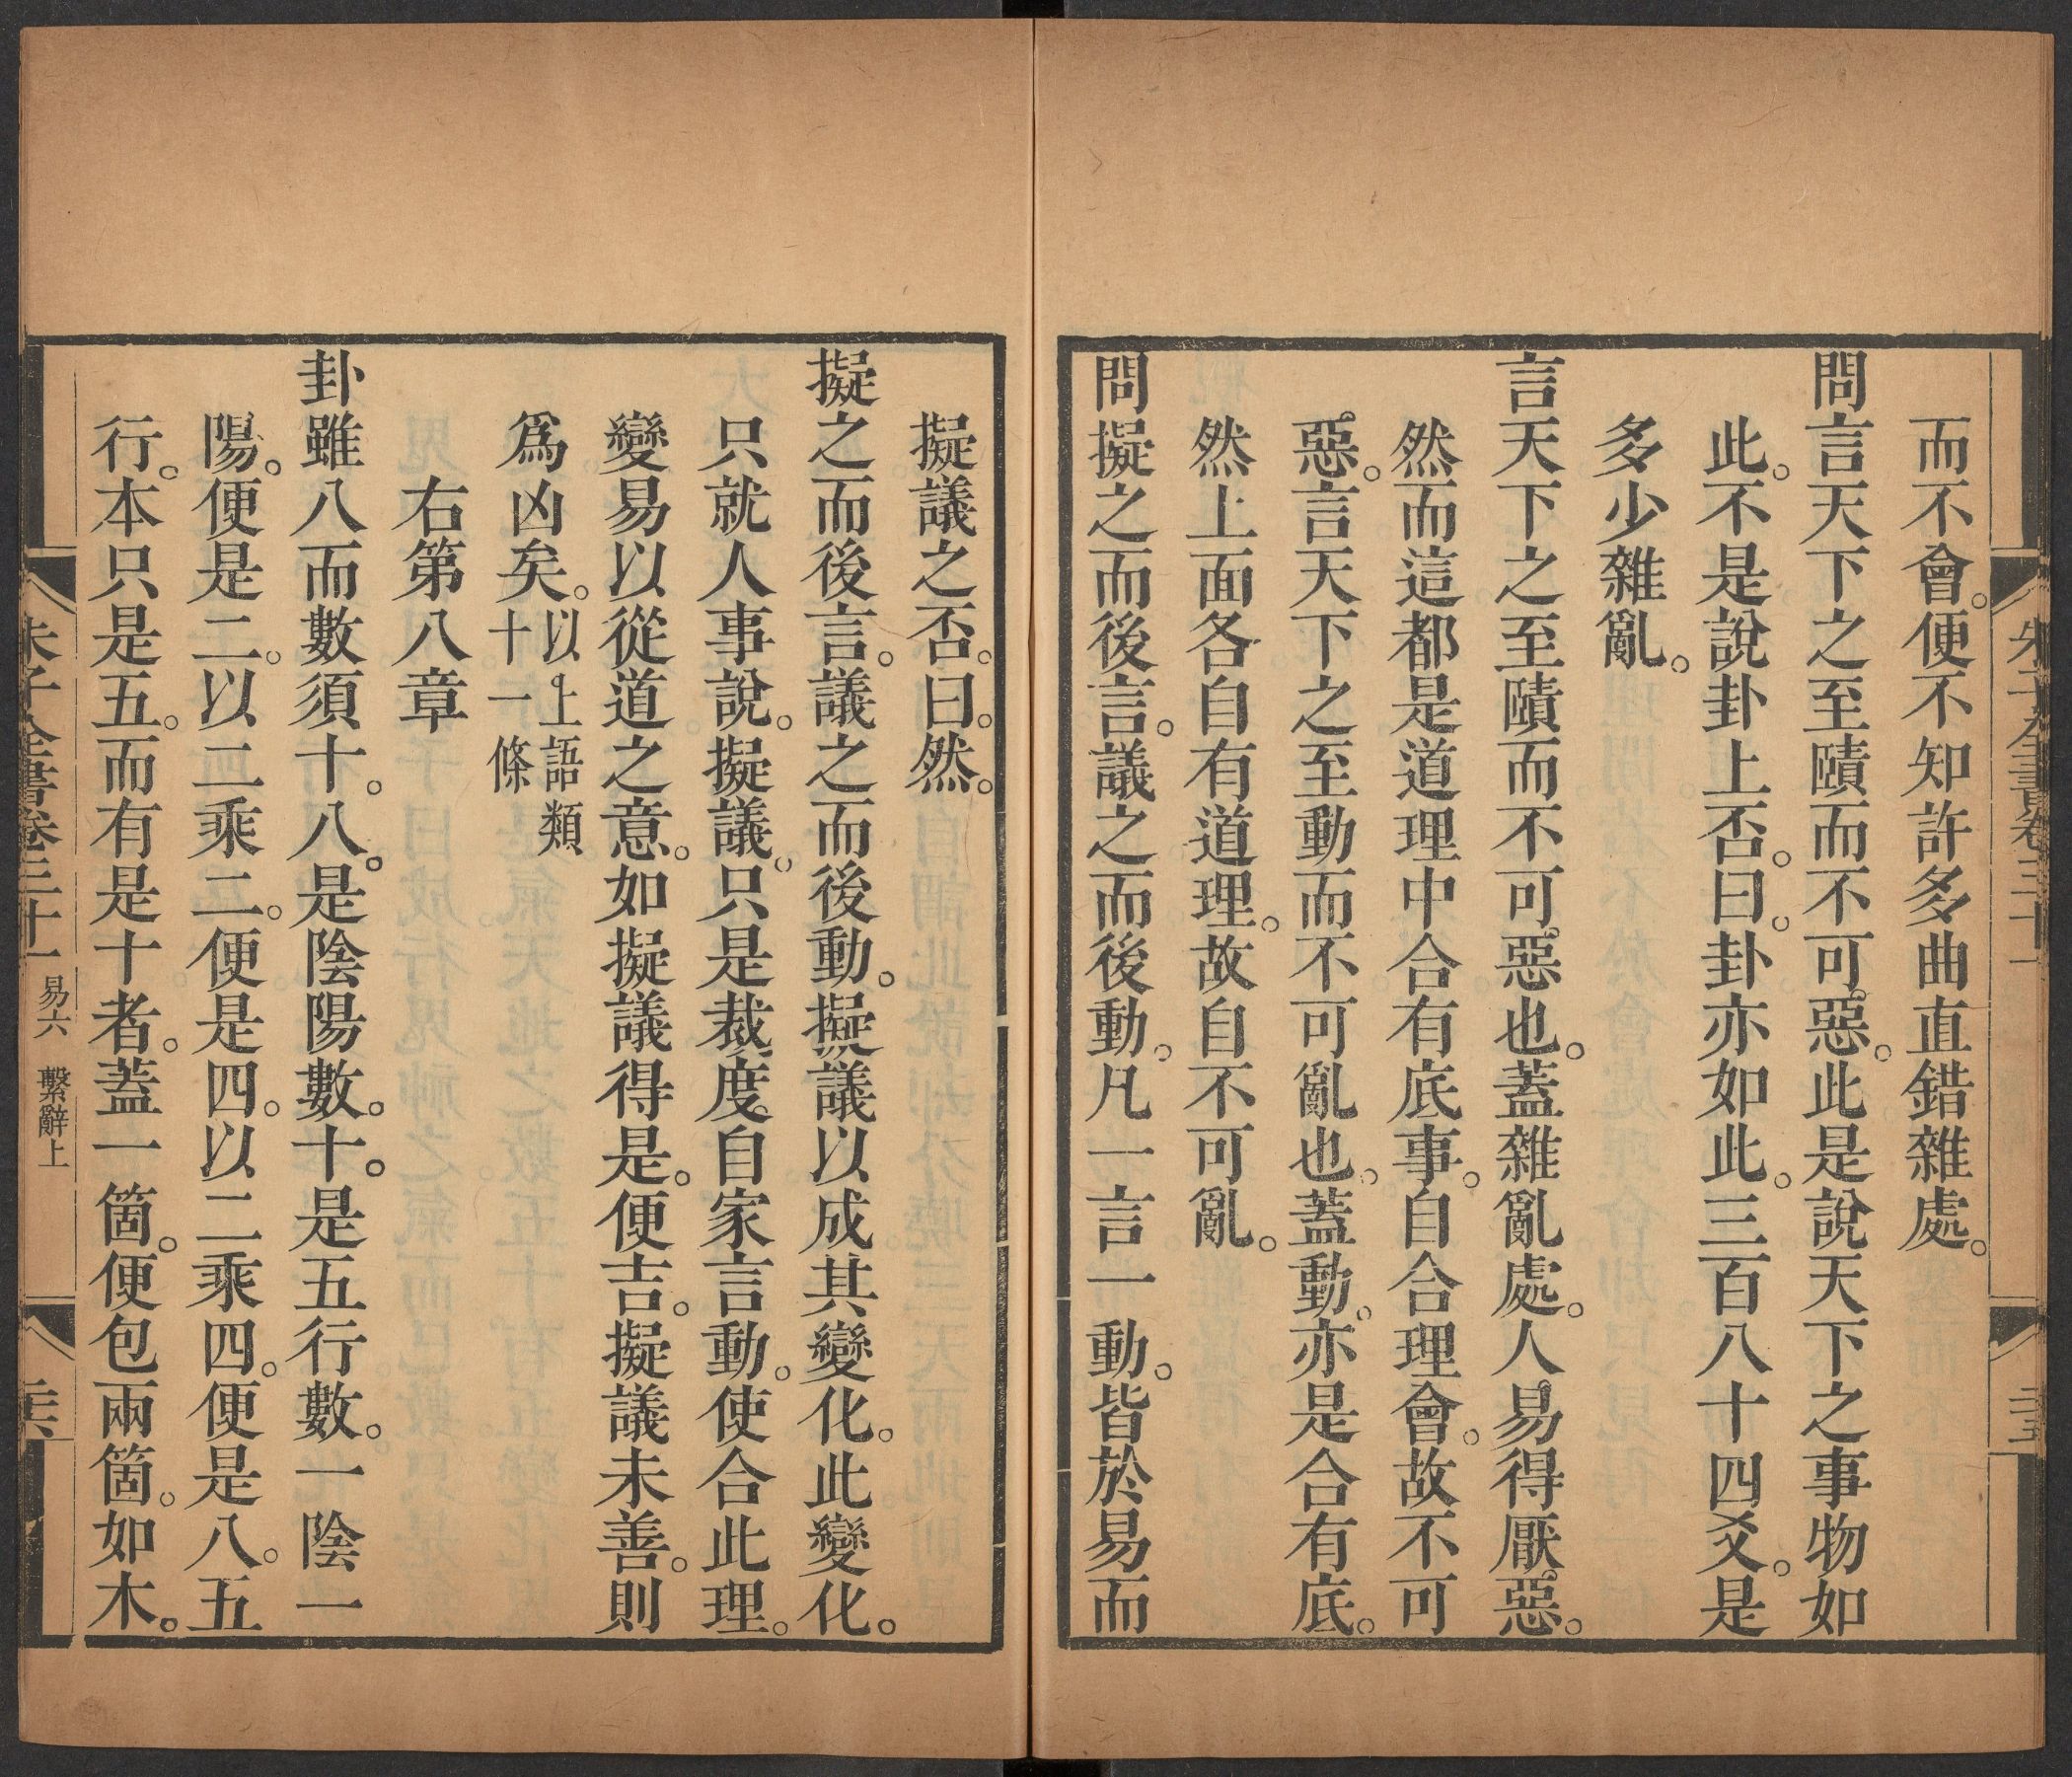 而不會。便不知許多曲直錯雜處。
問言天下之至賾而不可惡。此是說天下之事物如
此。不是說卦上否。曰。卦亦如此。三百八十四爻。是
多少雜亂。
言天下之至賾而不可惡也。蓋雜亂處。人易得厭惡。
然而這都是道理中合有底事。自合理會。故不可
惡。言天下之至動而不可亂也。蓋動。亦是合有底。
然上面各自有道理。故自不可亂。
問擬之而後言。議之而後動。凡一言一動。皆於易而
擬議之否。曰。然。
擬之而後言。議之而後動。擬議以成其變化。此變化。
只就人事說。擬議。只是裁度自家言動。使合此理。
變易以從道之意。如擬議得是。便吉。擬議未善。則
爲凶矣。以上語類
十一條
右第八章
卦雖八而數須十。八是陰陽數。十是五行數。一陰一
陽。便是二。以二乘二。便是四。以二乘四。便是八。五
行。本只是五。而有是十者。蓋一箇。便包兩箇。如木。
朱子全書卷三十一 易六 繫辭上